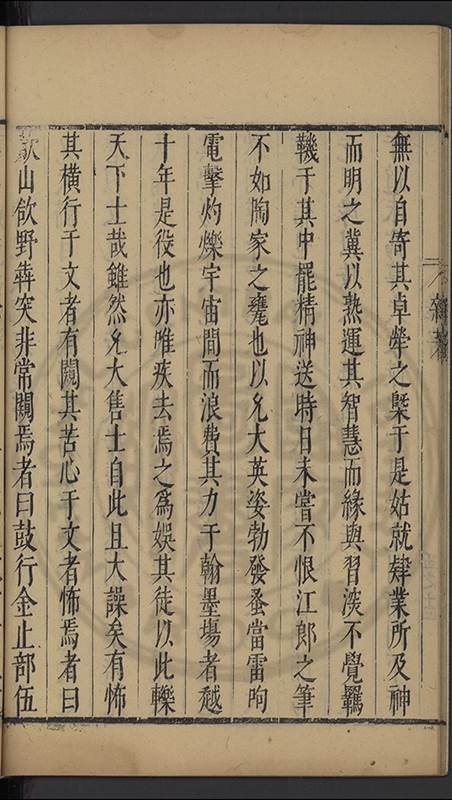 無以自寄其卓犖之槩于是姑就肄業所及神
而明之冀以熟運其智慧而緣與習深不覺羈
鞿于其中罷精神送時日未嘗不恨江郎之筆
不如陶家之甕也以允大英姿勃發蚤當雷呴
電擊灼爍宇宙間而浪費其力于翰墨塲者越
十年是役也亦唯疾去焉之爲娛其徒以此轢
天下士哉雖然允大售士自此且大譟矣有怖
其橫行于文者有閱其苦心于文者怖焉者曰
歕山飲野犇突非常閱焉者曰鼓行金止部伍